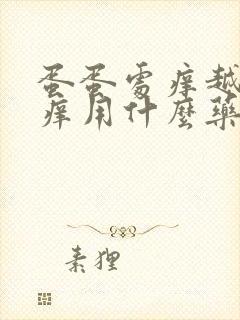 蛋蛋處痒越
痒用什麼藥
素狸